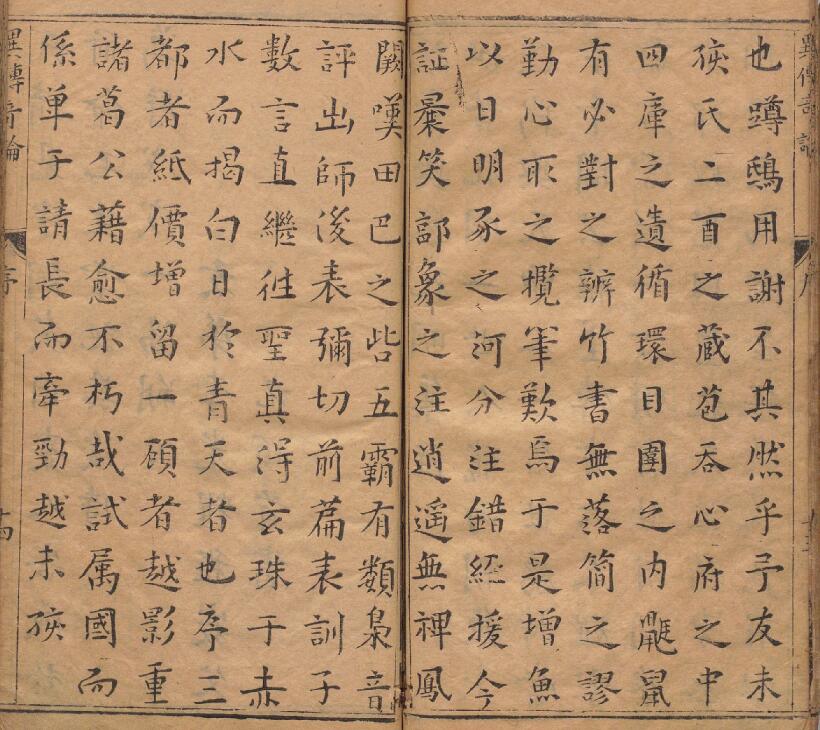 也蹲鴟用謝不其然乎予友未
孩氏二酉之蔵苞吞心府之中
四庫之遺循環目圍之内鼮鼠
有必對之辨竹書無落簡之謬
勤心取之攬筆歎焉于是增魚
以日明豕之河分注錯經援今
証彙笑郭象之注逍遥無裨鳳
闕嘆田巴之呰五霸有類梟音
評出師後表彌切前篇表訓子
數言直繼徃聖真淂玄珠于赤
水而揭白日於青天者也序三
都者紙價增留一碩者越影重
諸葛公藉愈不朽哉試属國而
係单于請長而牽勁越未孩